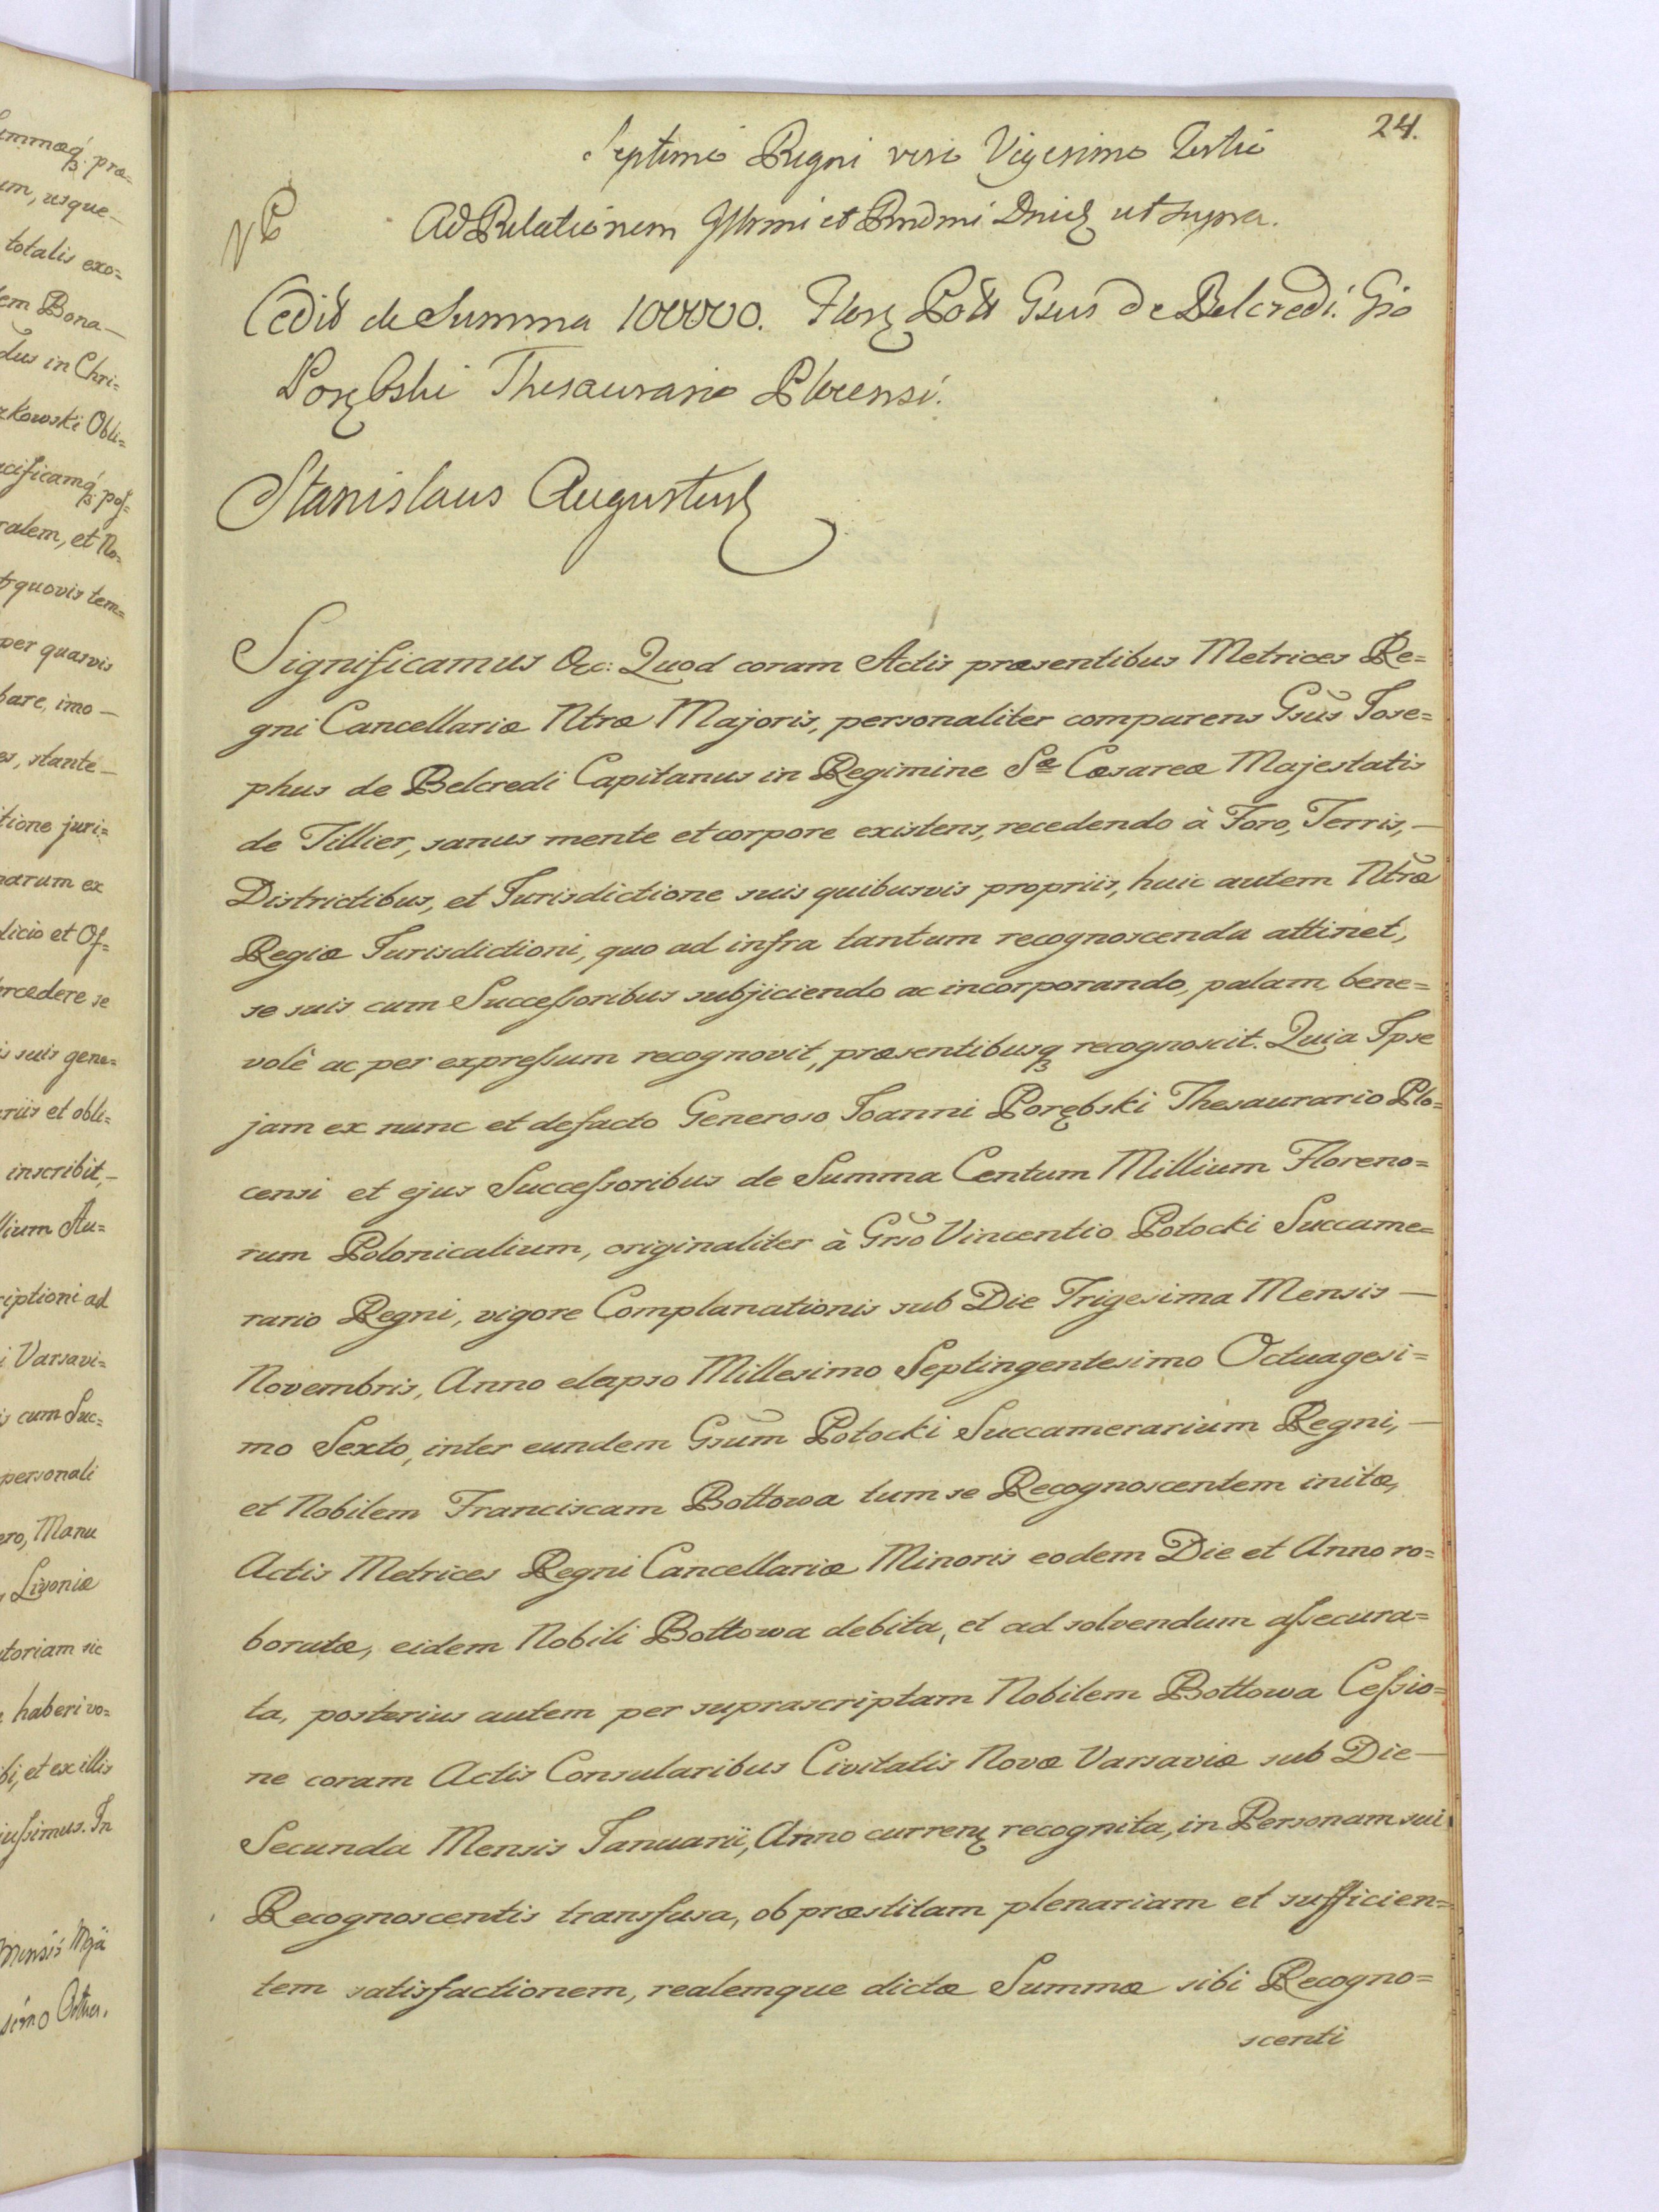 ummæq́ præ=
um, usque_
totalis exo=
em Bona_
dus in Chri=
zkowski Obli=
cificamq́ pos=
ralem, et No=
quovis tem=
per quasvis
bare, imo_
es, stante_
tione juri=
narum ex
dicio et Of=
ercedere se
is suis gene=
riis et obli=
inscribit,_
llium Au=
riptioni ad
i Varsavi=
is cum Suc=
personali
ero, Manu
Livoniæ
toriam sic
haberi vo=
bi, et ex illis
iussimus. In
Mensis Maji
simo
24.
Septimo Regni vero Vigesimo Tertio
Ad Relationem Illrmi et Rndmi Dni ut supra.
Cedit de Summa 100000. Flor Poll Gsus de Belcredi. Gso
Porębski Thesaurario Plocensi.
Stanislaus Augustus
Significamus &c: Quod coram Actis præsentibus Metrices Re=
gni Cancellariæ Ntræ Majoris, personaliter comparens Gsus Jose=
phus de Belcredi Capitanus in Regimine Sæ Cæsareæ Majestatis
de Tillier, sanus mente et corpore existens, recedendo à Foro, Terris,_
Districtibus, et Jurisdictione suis quibusvis propriis, huic autem Ntræ
Regiæ Jurisdictioni, quo ad infra tantum recognoscenda attinet,
se suis cum Successoribus subjiciendo ac incorporando, palam, bene=
volè ac per expressum recognovit, præsentibusq recognoscit. Quia Ipse
jam ex nunc et defacto Generoso Joanni Porębski Thesaurario Plo=
censi et ejus Successoribus de Summa Centum Millium Floreno=
rum Polonicalium, originaliter à Grso Vincentio Potocki Succame=
rario Regni, vigore Complanationis sub Die Trigesima Mensis_
Novembris, Anno elapso Millesimo Septingentesimo Octuagesi=
mo Sexto, inter eundem Gsum Potocki Succamerarium Regni,_
et Nobilem Franciscam Bottowa tum se Recognoscentem initæ,
Actis Metrices Regni Cancellariæ Minoris eodem Die et Anno ro=
boratæ, eidem Nobili Bottowa debita, et ad solvendum assecura=
ta, posterius autem per suprascriptam Nobilem Bottowa Cessio=
ne coram Actis Consularibus Civitatis Novæ Varsaviæ sub Die_
Secunda Mensis Januarii, Anno curren recognita, in Personam sui
Recognoscentis transfusa, ob præstitam plenariam et sufficien=
tem satisfactionem, realemque dictæ Summæ sibi Recogno=
scenti